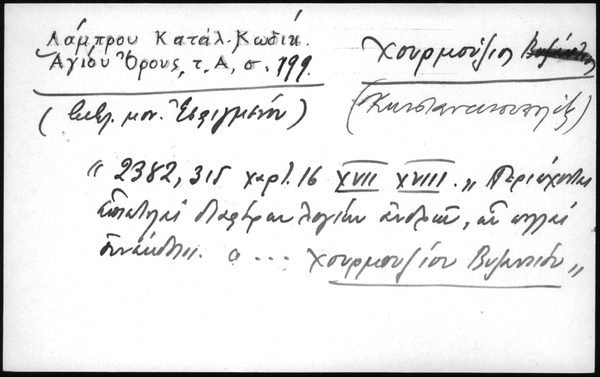 Λάμπρου Κατάλ. Κωδίκ.
Ἁγίου Ὄρους, τ. Α, σ. 199.
Χουρμούζιος Βυζάντιος
(Βιβλ. μον. Ἐσφιγμένου)
(Κωνσταντινουπολίτης)
" 2382, 315 χαρτ. 16 XVII XVIII. „ Περιέχονται
ἐπιστολαί διαφόρων λογίων ἀνδρῶν, αἱ πολλαί
ἀνέκδοτοι. α ... Χουρμουζίου Βυζαντίου „